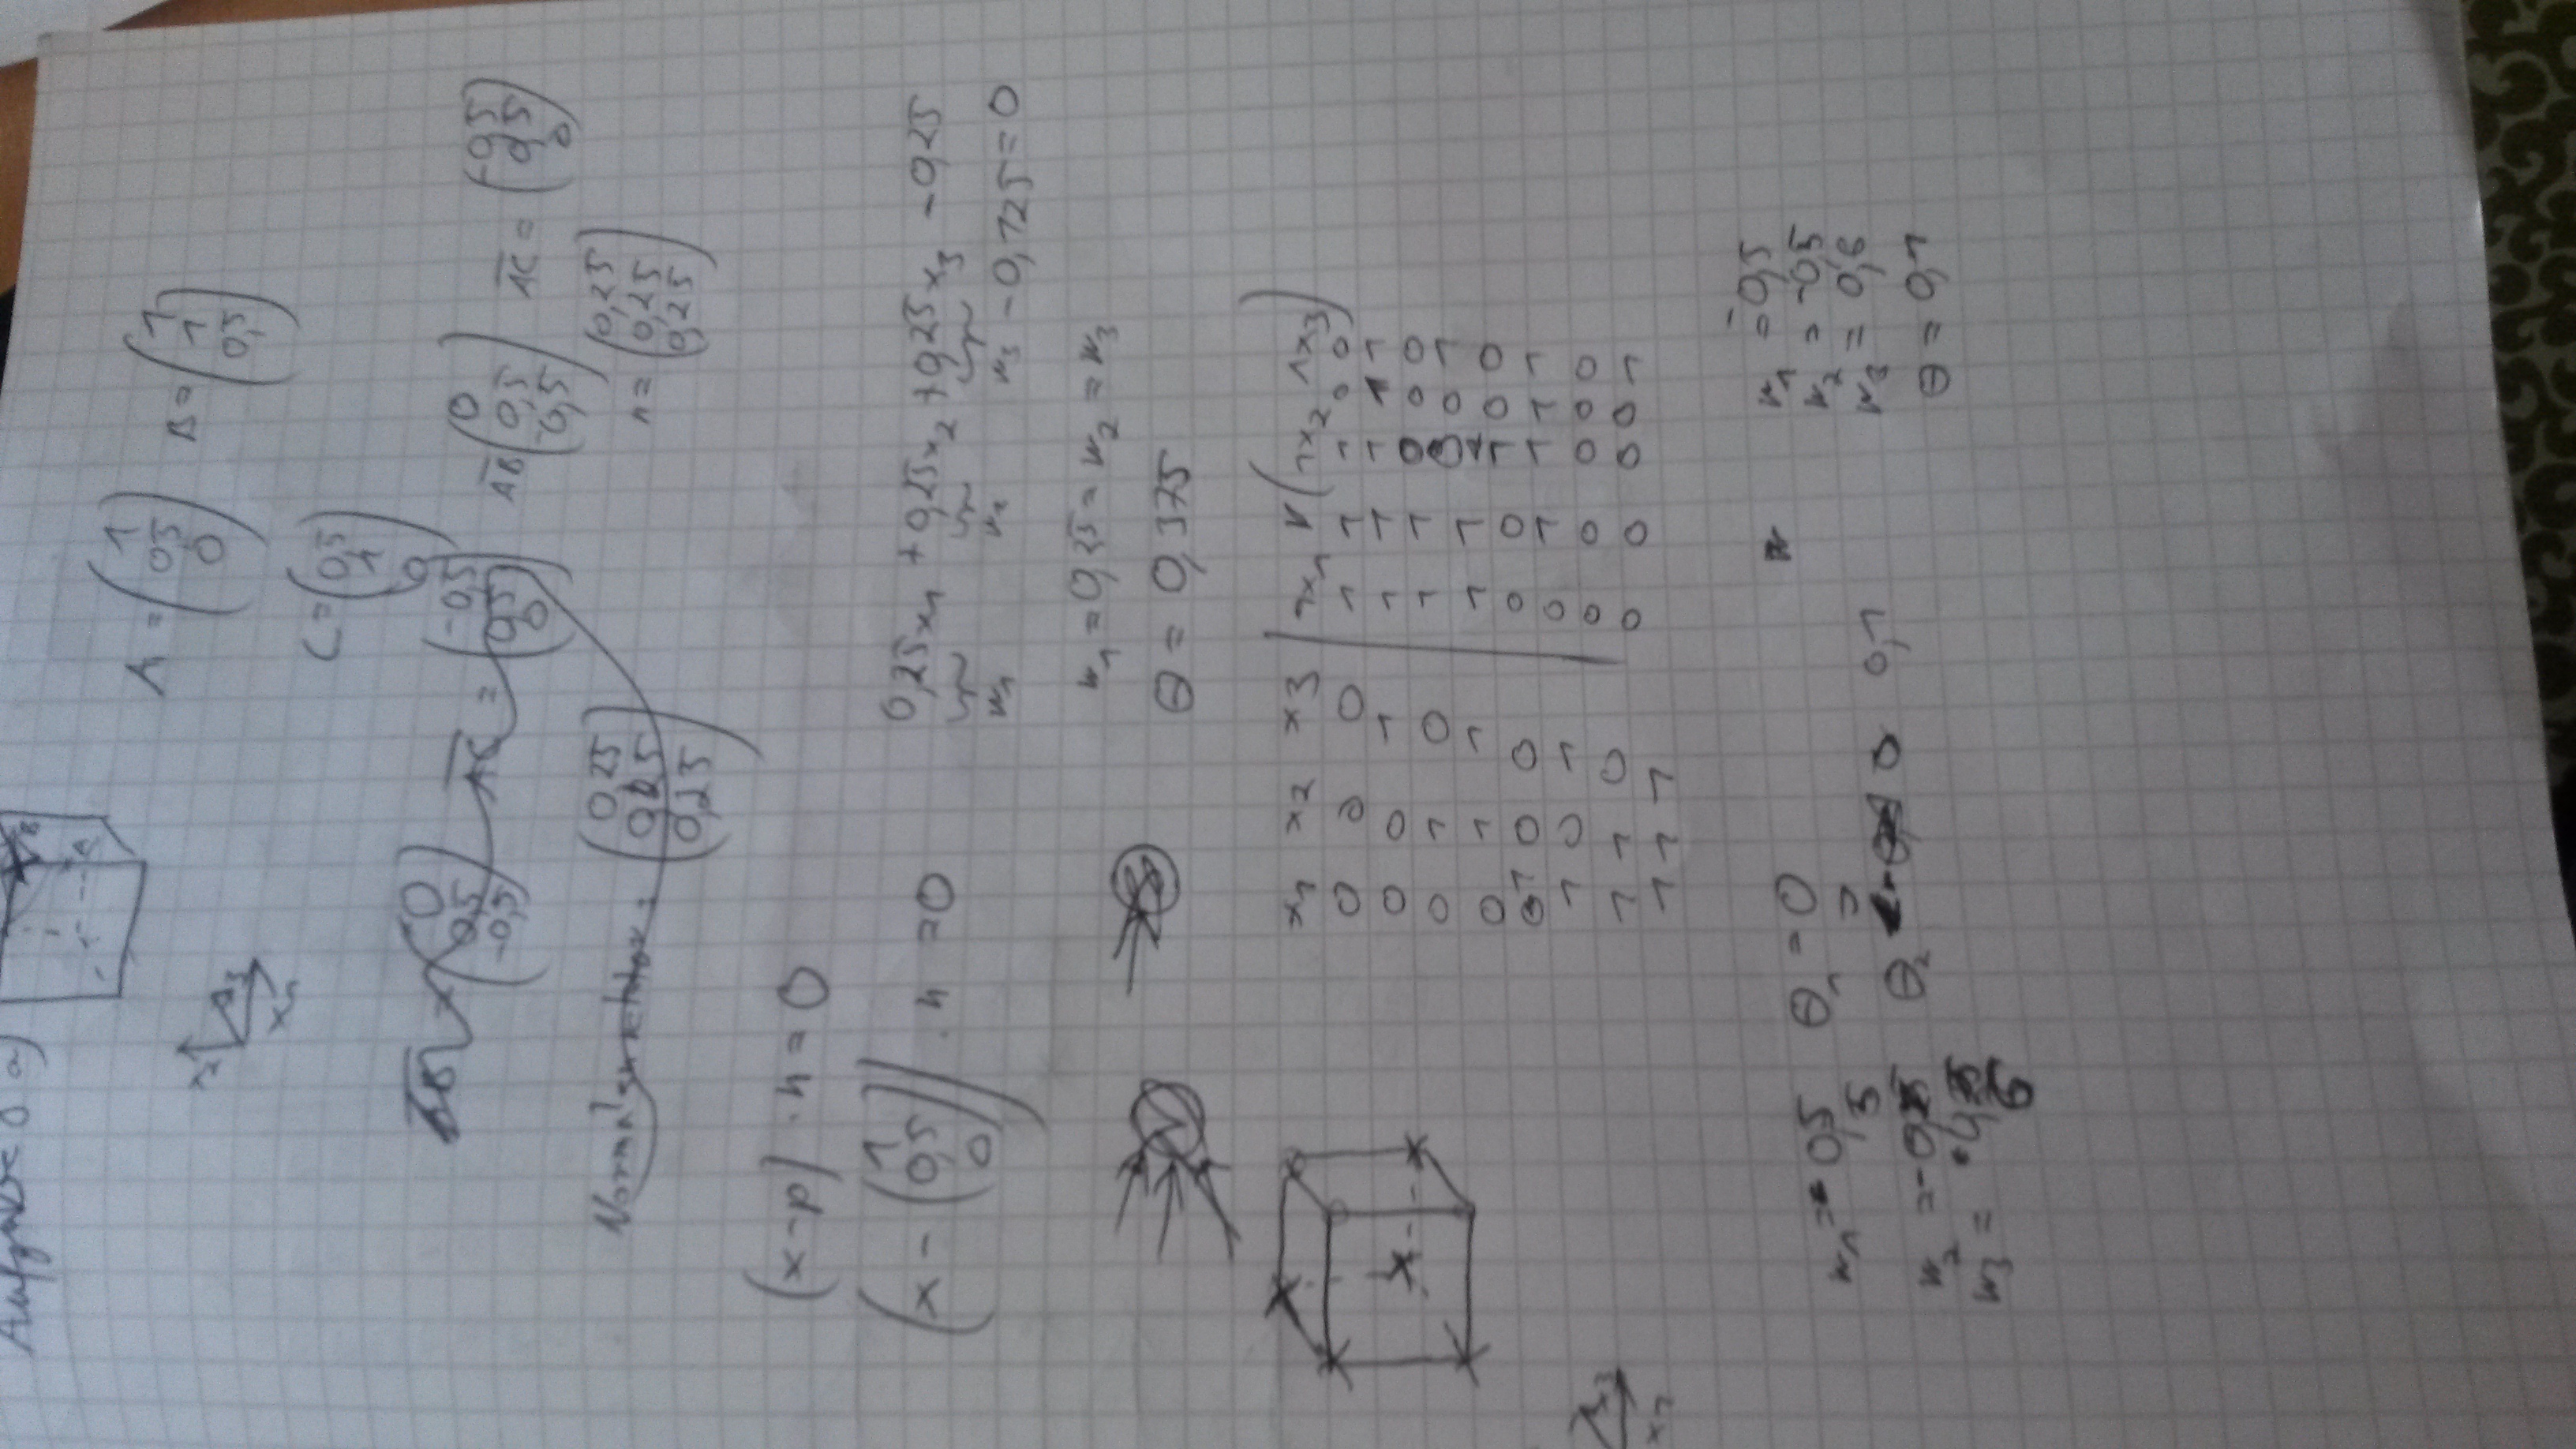 Aufgabe 8 a)
A = (1 0,5 0) B = (1 1 0,5)
x2 x3
x1
C = (0,5 1 0)
AC = (-0,5 0,5 0)
(0 0,5 -0,5)
AB (0 0,5 -0,5) AC = (-0,5 0,5 0)
Normalenvektor: (0,25 0,25 0,25)
n = (0,25 0,25 0,25)
(x-p) · n = 0
(x - (1 0,5 0)) · n = 0
0,25x1 + 0,25x2 + 0,25x3 - 0,25
w1 w2 w3 - 0,125 = 0
w1 = 0,25 = w2 = w3
θ = 0,375
x1 x2 x3 | ¬x1 ∨ (¬x2 ∧ x3)
0 0 0 | 1 1 1 0 0
0 0 1 | 1 1 1 1 1
0 1 0 | 1 1 0 0 0
0 1 1 | 1 1 0 0 1
1 0 0 | 0 0 1 0 0
1 0 1 | 0 1 1 1 1
1 1 0 | 0 0 0 0 0
1 1 1 | 0 0 0 0 1
x3
x1
w1 = -0,5 θ1 = 0
w2 = -0,5 θ2 0,1
w3 = 6
w1 = -0,5
w2 = -0,5
w3 = 0,6
θ = 0,1